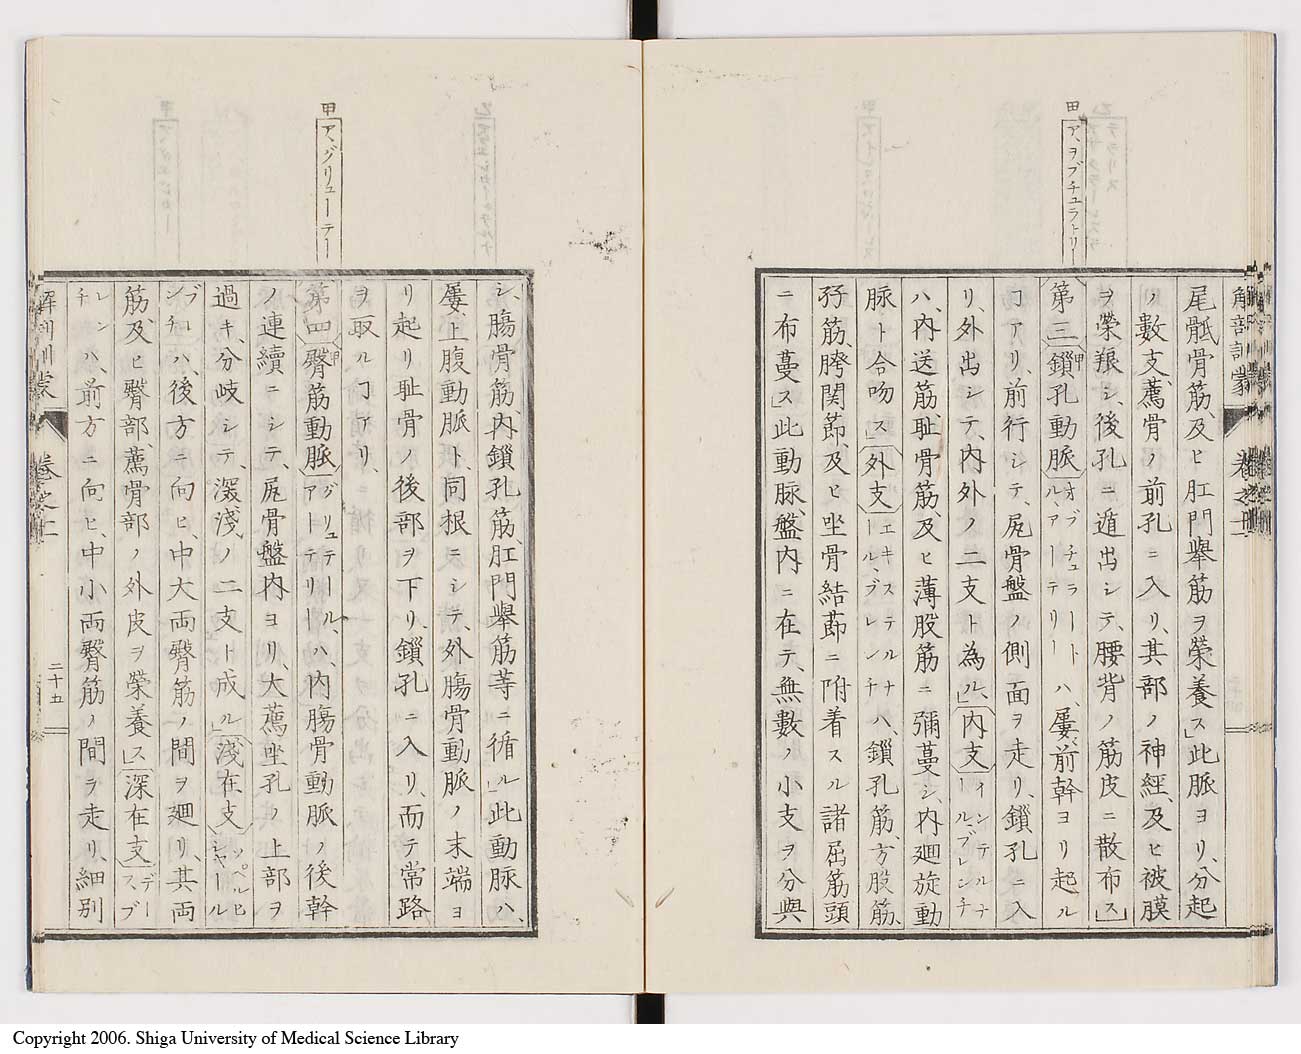 甲
ア、ヲブチュラトリー
解剖訓蒙
卷之十
尾骶骨筋、及ヒ肛門擧筋ヲ榮養ス」此脈ヨリ、分起
ノ數支、薦骨ノ前孔ニ入リ、其部ノ神經、及ヒ被膜
ヲ榮養シ、後孔ニ遁出シテ、腰背ノ筋皮ニ散布ス」
第三甲鎖孔動脈オブチュラートルアーテリーハ、屡、前幹ヨリ起ル
ヿアリ、前行シテ、尻骨盤ノ側面ヲ走リ、鎖孔ニ入
リ、外出シテ、内外ノ二支ト為ル、内支インテルナールブレンチ
ハ、内送筋、耻骨筋、及ヒ薄股筋ニ彌蔓シ、内廻旋動
脉ト合吻ス」外支エキステルナールブレンチハ、鎖孔筋、方股筋、
孖筋、胯関節、及ヒ坐骨結莭ニ附着スル諸屈筋頭
ニ布蔓ス」此動脉、盤内ニ在テ、無數ノ小支ヲ分與
甲
ア、グリューテー
シ、腸骨筋、内鎖孔筋、肛門擧筋等ニ循ル」此動脉ハ、
屡、上腹動脈ト、同根ニシテ、外腸骨動脈ノ末端ヨ
リ起リ耻骨ノ後部ヲ下リ、鎖孔ニ入リ、而テ常路
ヲ取ルヿアリ、
第四甲臀筋動脈グリュテールアーテリーハ、内腸骨動脈ノ後幹
ノ連續ニシテ、尻骨盤内ヨリ、大薦坐孔ノ上部ヲ
過キ、分岐シテ、深淺ノ二支ト成ル」淺在支ソペルヒシャール
ブレンチハ、後方ニ向ヒ、中大両臀筋ノ間ヲ廻リ、其両
筋、及ヒ臀部、薦骨部ノ外皮ヲ榮養ス」深在支デープブ
レンチハ、前方ニ向ヒ、中小両臀筋ノ間ヲ走リ、細別
二十五
Copyright 2006. Shiga University of Medical Science Library